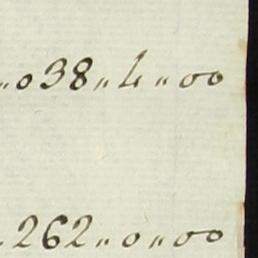 „038„4„00
„262„0„00